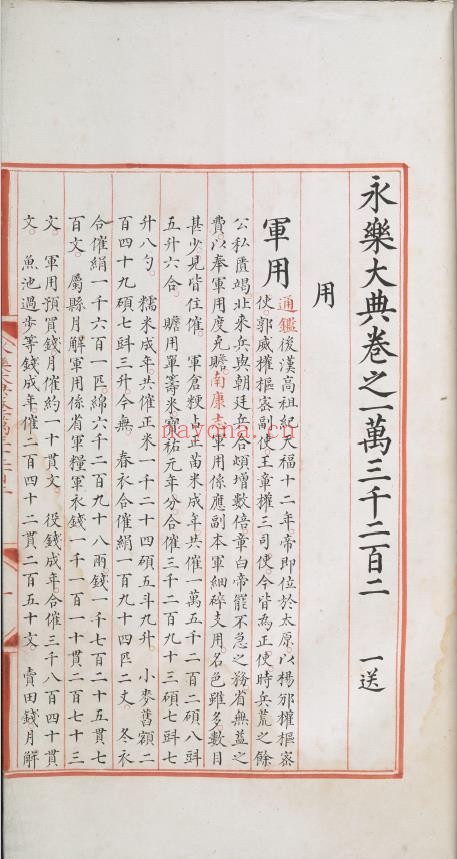 永樂大典卷之一萬三千二百二 一送
用
軍用 通鑑後漢高祖紀天福十二年帝即位於太原以楊邠權樞宻
使郭威權樞宻副使王章權三司使今皆為正使時兵荒之餘
公私匱竭北來兵與朝廷兵合頓增數倍章白帝罷不急之務省無益之
費以奉軍用度充贍南康志軍用係應副本軍細碎支用名色雖多數目
甚少見皆住催 軍倉粳占上苗米成年共催一萬五千二百二碩八㪷
五升六合 贍用單籌米寶祐元年分合催三千二百九十三碩七㪷七
升八勺 糯米成年共催正米一千二十四碩五斗九升 小麥舊額二
百四十九碩七㪷三升今無 春衣合催絹一百九十四匹二丈 冬衣
合催絹一千六百一匹綿六千二百九十八兩錢一千七百二十五貫七
百文 屬縣月解軍用係省軍糧軍衣錢一千一百一十貫二百七十三
文 軍用預買錢月催約一十貫文 役錢成年合催三千八百四十貫
文 魚池過步等錢成年催二百四十二貫二百五十文 賣田錢月解
nayona.cn